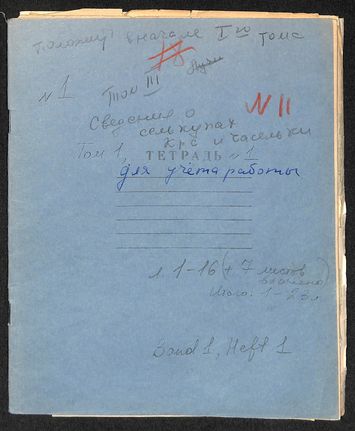 Положить вначале I го тома
78
№1 Том III
N 11
Сведения о
селькупах
Крс и часельки
Том 1,
ТЕТРАДЬ №1
для учёта работы
л. 1-16 (+ 7 листов
вложено)
Итого: 1-23 л
Band 1, Heft 1